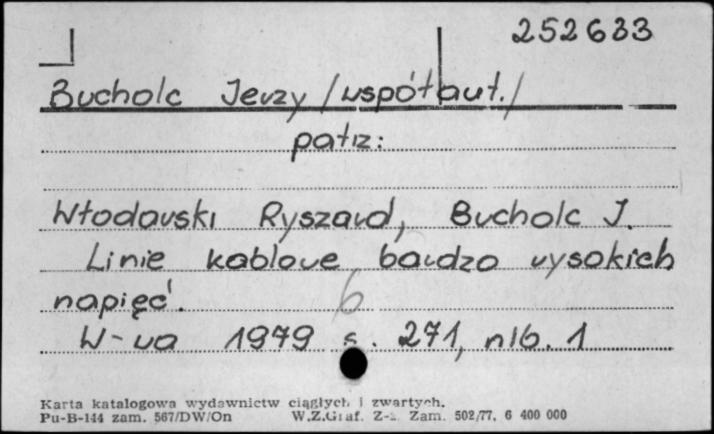 252633
Bucholc Jerzy /współaut./
patrz:
Włodarski Ryszard, Bucholc J.
Linie kablowe bardzo wysokich
napięć. 6
W-wa 1979 s. 271, nlb. 1
Karta katalogowa wydawnictw ciągłych i zwartych.
Pu-B-144 zam. 567/DW/On W.Z.Graf. Zam. 502/77. 6 400 000